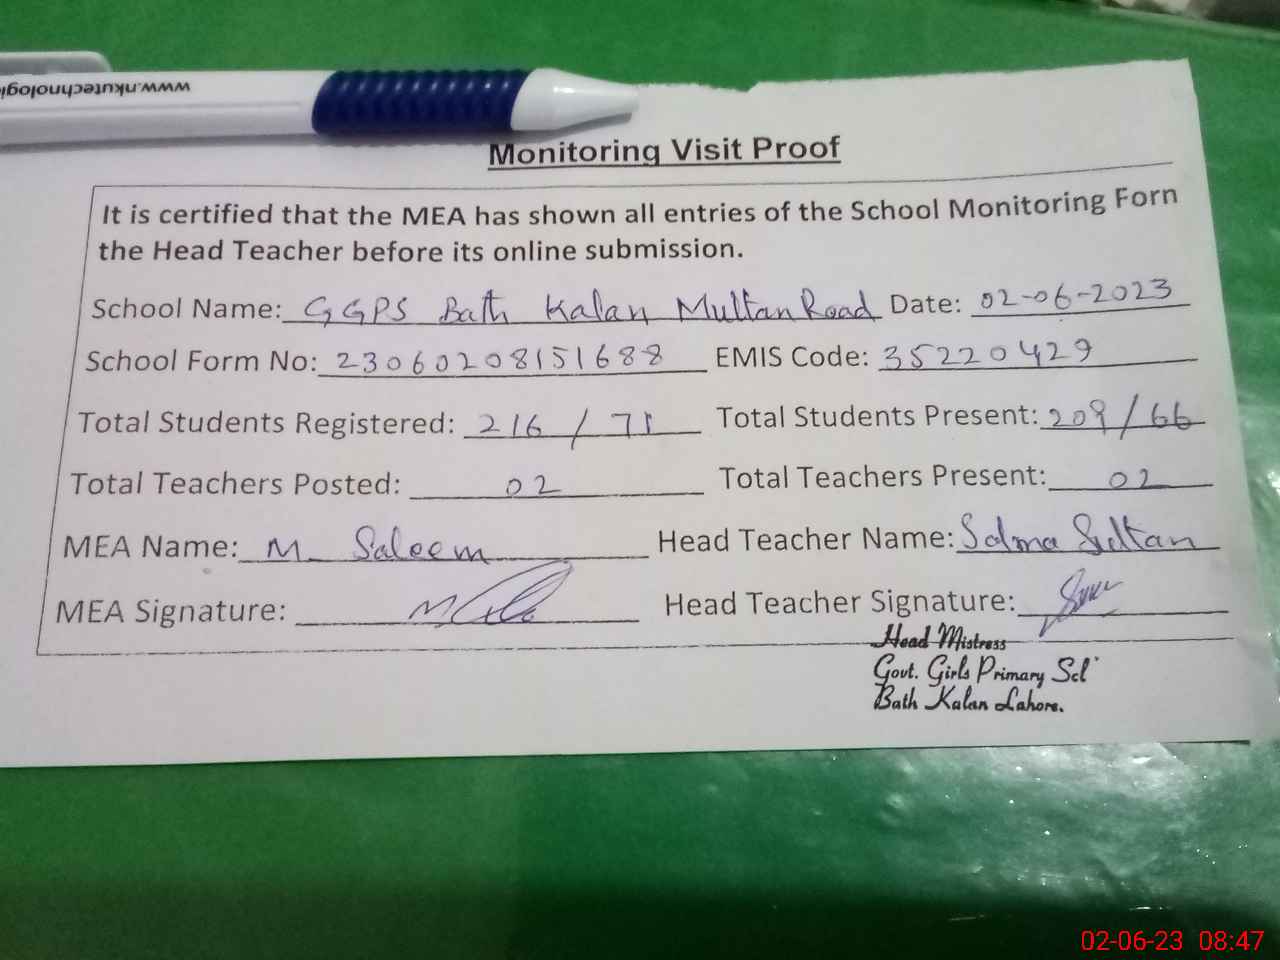 www.nkutechnologi
Monitoring Visit Proof
It is certified that the MEA has shown all entries of the School Monitoring Forn
the Head Teacher before its online submission.
School Name: GGPS Bath Kalan Multan Road Date: 02-06-2023
School Form No: 23060208151688 EMIS Code: 35220429
Total Students Registered: 216 / 71 Total Students Present: 209/66
Total Teachers Posted: 02 Total Teachers Present: 02
MEA Name: M. Saleem Head Teacher Name: Salma Sultan
MEA Signature: Head Teacher Signature:
Head Mistress
Govt. Girls Primary Scl
Bath Kalan Lahore.
02-06-23 08:47